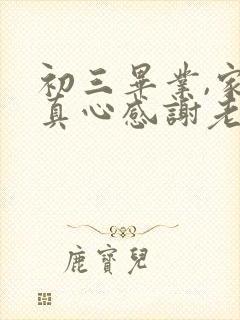 初三畢業,家
真心感謝老
鹿寶兒